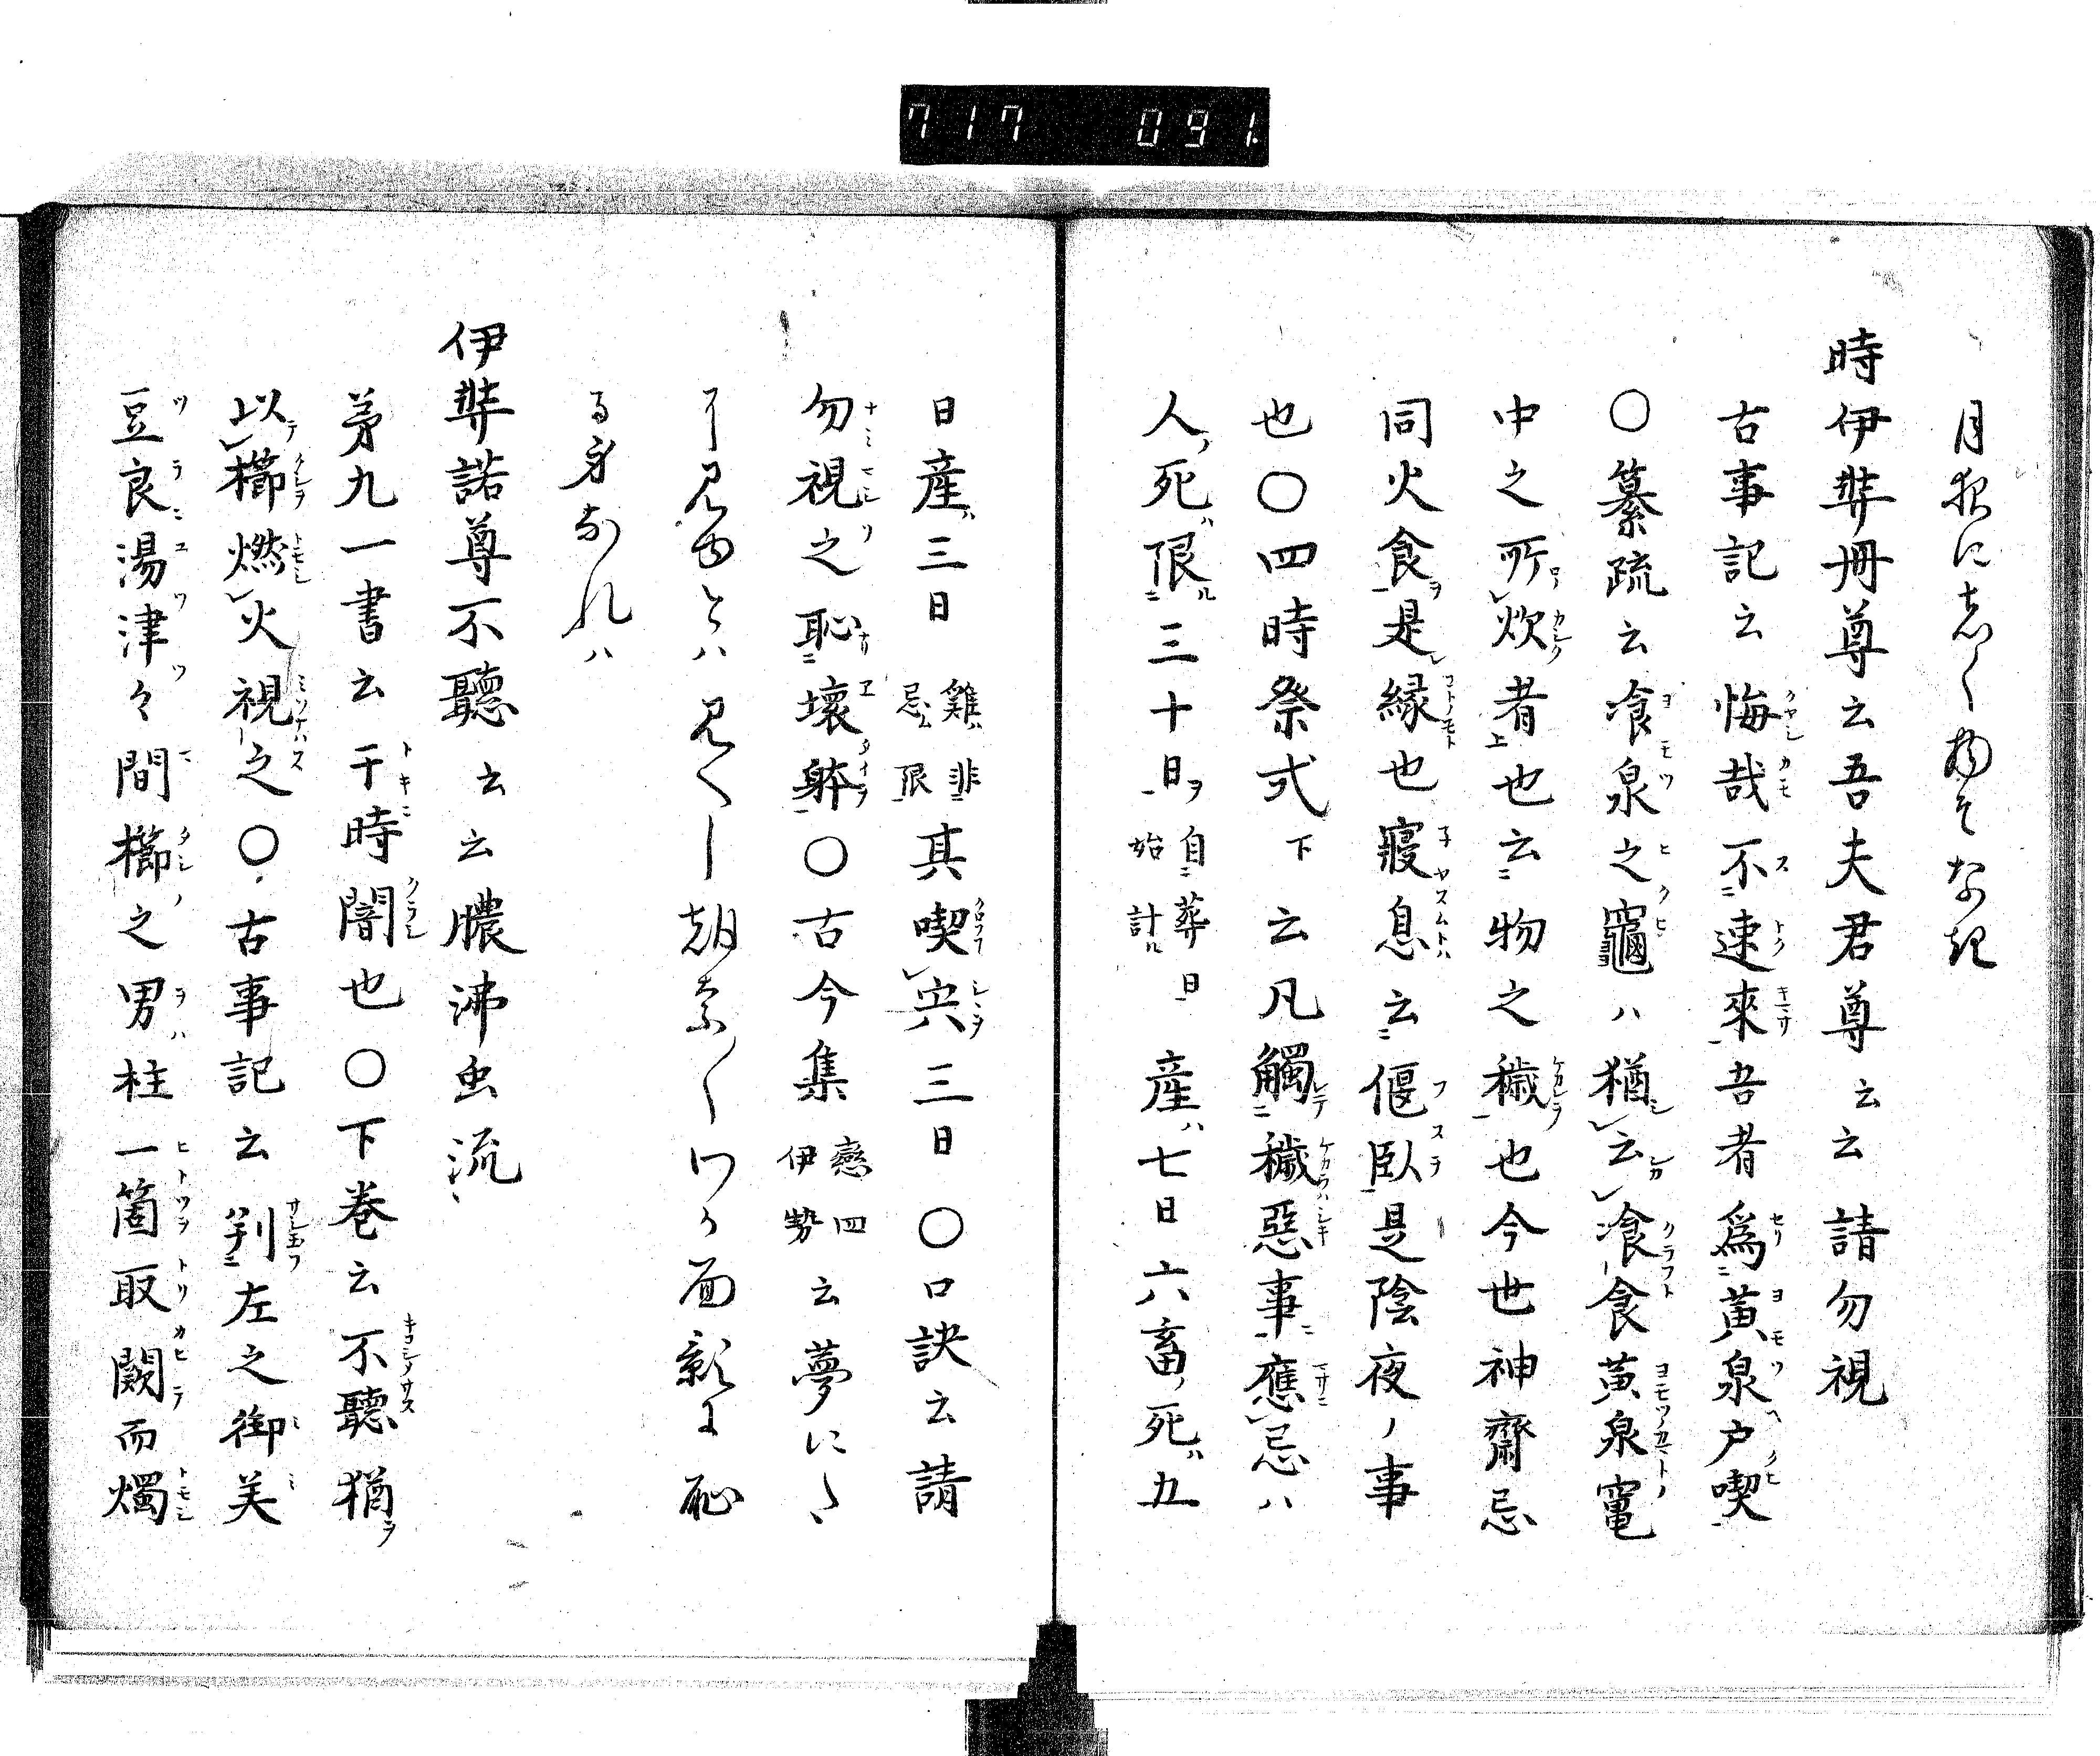 717 091
月夜にしく物そなき
時伊弉冊尊云吾夫君尊云云請勿視
古事記云悔哉不速來吾者為黄泉戸喫
〇纂疏云飡泉之竈ハ猶云飡食黄泉竃
中之所炊者也云物之穢也今世神齋忌
同火食是縁也寢息云偃臥是陰夜ノ事
也〇四時祭式下云凡觸穢惡事應忌ハ
人死限三十日自葬日始計産七日六畜死五
日産三日雞非忌限其喫宍三日〇口訣云請
勿視之恥壞躰〇古今集戀四伊勢云夢にた
に見ゆとハ見くし朝な〱わか面影に恥
る身なれハ
伊弉諾尊不聽云云膿沸虫流
第九一書云于時闇也〇下巻云不聽猶
以櫛燃火視之〇古事記云判左之御美
豆良湯津々間櫛之男柱一箇取闕而燭